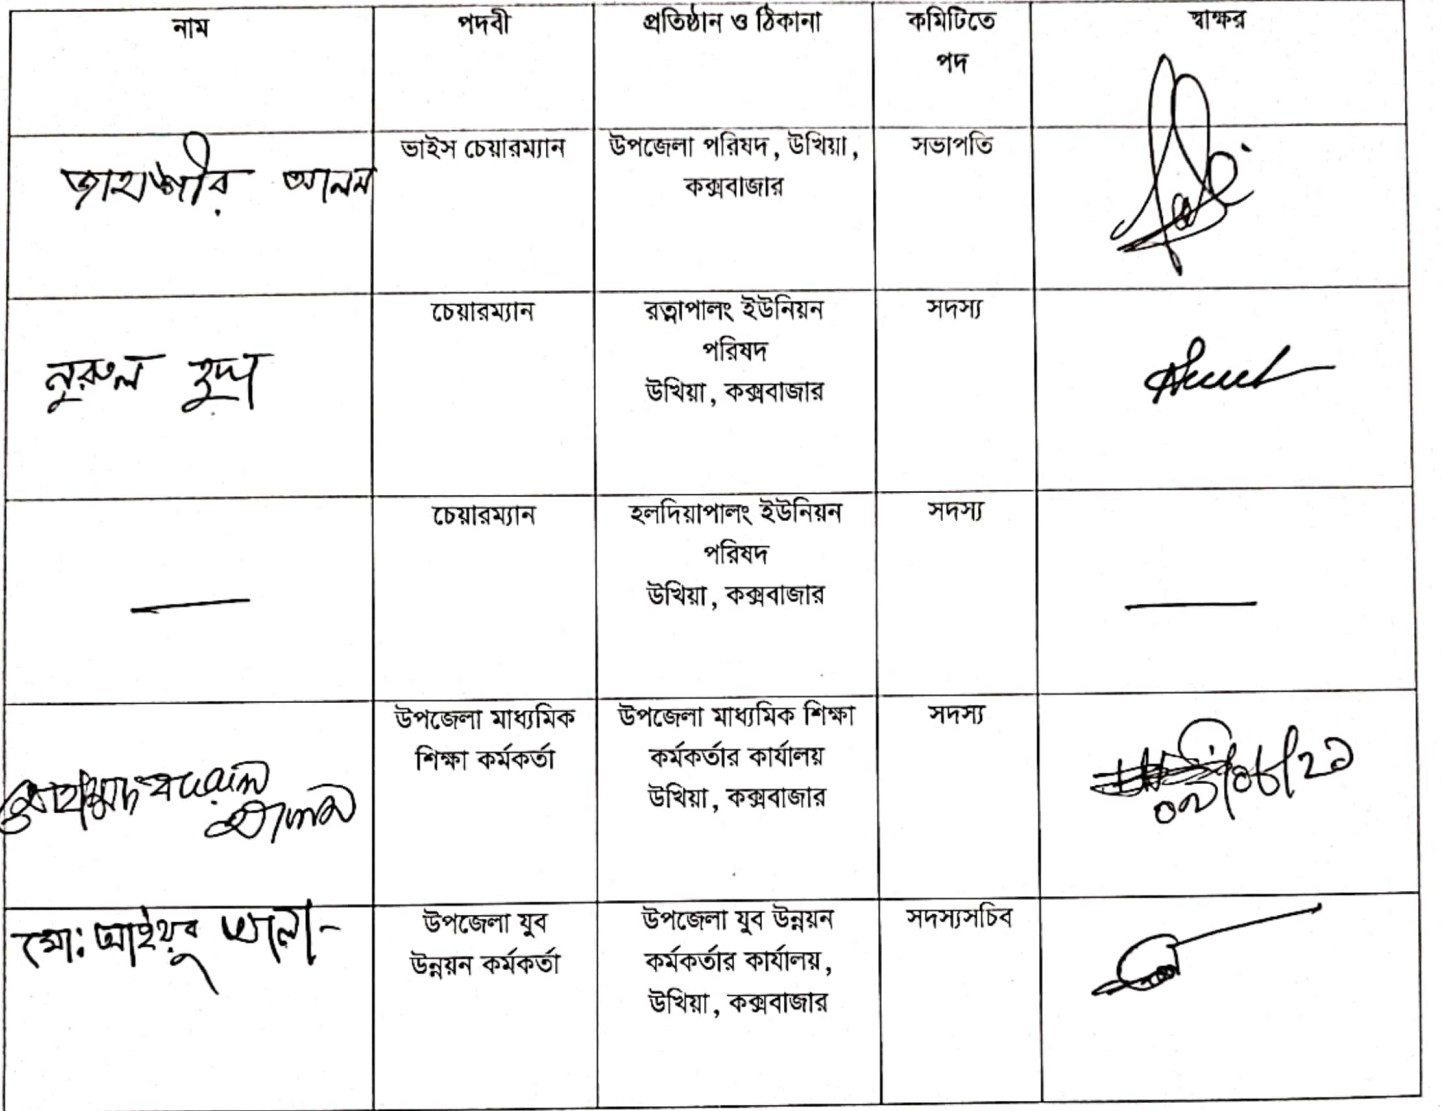 নাম
পদবী
প্রতিষ্ঠান ও ঠিকানা
কমিটিতে
পদ
স্বাক্ষর
জাহাঙ্গীর আলম
ভাইস চেয়ারম্যান
উপজেলা পরিষদ, উখিয়া,
কক্সবাজার
সভাপতি
নুরুল হুদা
চেয়ারম্যান
রত্নাপালং ইউনিয়ন
পরিষদ
উখিয়া, কক্সবাজার
সদস্য
চেয়ারম্যান
হলদিয়াপালং ইউনিয়ন
পরিষদ
উখিয়া, কক্সবাজার
সদস্য
আলম
উপজেলা মাধ্যমিক
শিক্ষা কর্মকর্তা
উপজেলা মাধ্যমিক শিক্ষা
কর্মকর্তার কার্যালয়
উখিয়া, কক্সবাজার
সদস্য
মো: আইয়ুব আলী
উপজেলা যুব
উন্নয়ন কর্মকর্তা
উপজেলা যুব উন্নয়ন
কর্মকর্তার কার্যালয়,
উখিয়া, কক্সবাজার
সদস্যসচিব